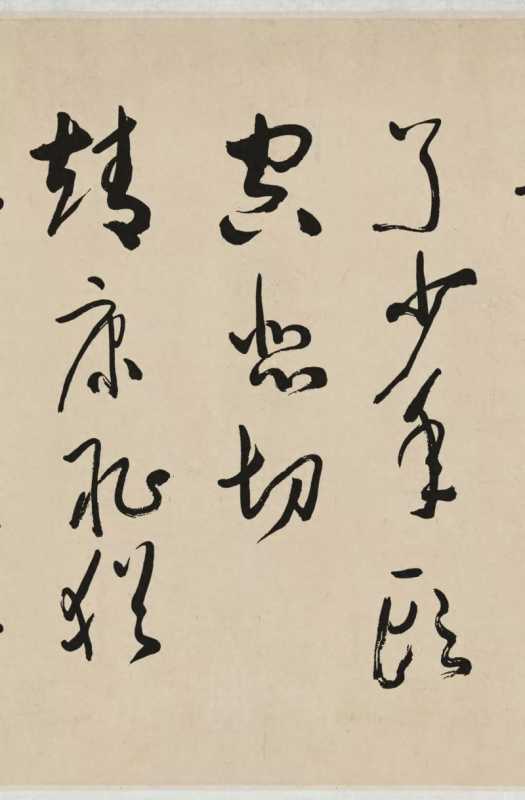 了少年頭
空悲切
靖康恥猶